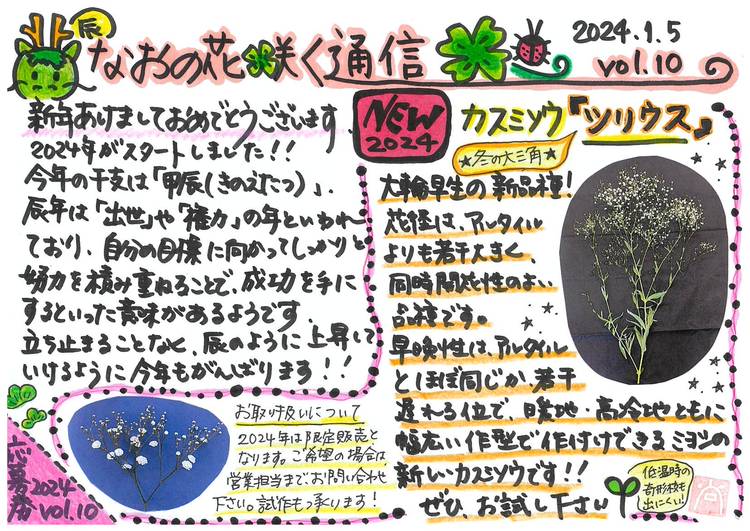 辰
なおの花咲く通信
2024.1.5
vol.10
新年あけましておめでとうございます。
2024年がスタートしました!!
今年の干支は「甲辰(きのえたつ)」、
辰年は「出世」や「権力」の年といわれ
ており、自分の目標に向かってしっかりと
努力を積み重ねることで、成功を手に
するといった意味があるようです。
立ち止まることなく、辰のように上昇して
いけるように今年もがんばります!!
NEW
2024
カスミソウ『シリウス』
★冬の大三角★
大輪早生の新品種!
花径は、アルタイル
よりも若干大きく、
同時開花性のよい
品種です。
早晩性は、アルタイル
とほぼ同じか、若干
遅れる位で、暖地・高冷地ともに
幅広い作型で作付けできるミヨシの
新しいカスミソウです!!
ぜひ、お試し下さい
低温時の
奇形枝も
出にくい!
お取り扱いについて
2024年は限定販売と
なります。ご希望の場合は、
営業担当までお問い合わせ
下さい。試作も承ります!
2024
vol.10